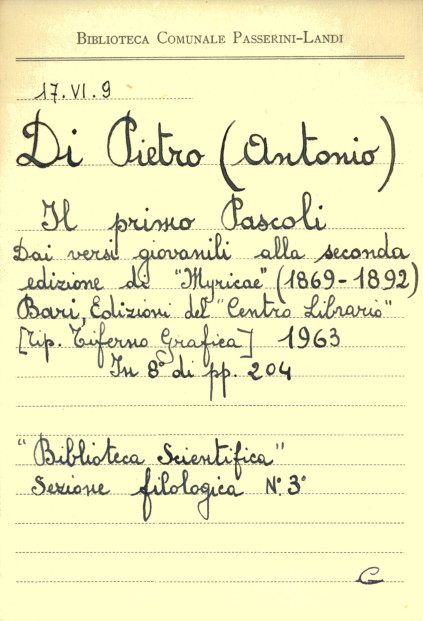 BIBLIOTECA COMUNALE PASSERINI-LANDI
17.VI.9
Di Pietro (Antonio)
Il primo Pascoli
Dai versi giovanili alla seconda
edizione di "Myricae" (1869-1892)
Bari, Edizioni del "Centro Librario"
[Tip. Tiferno Grafica] 1963
In 8° di pp. 204
"Biblioteca Scientifica"
Sezione filologica N. 3°
G